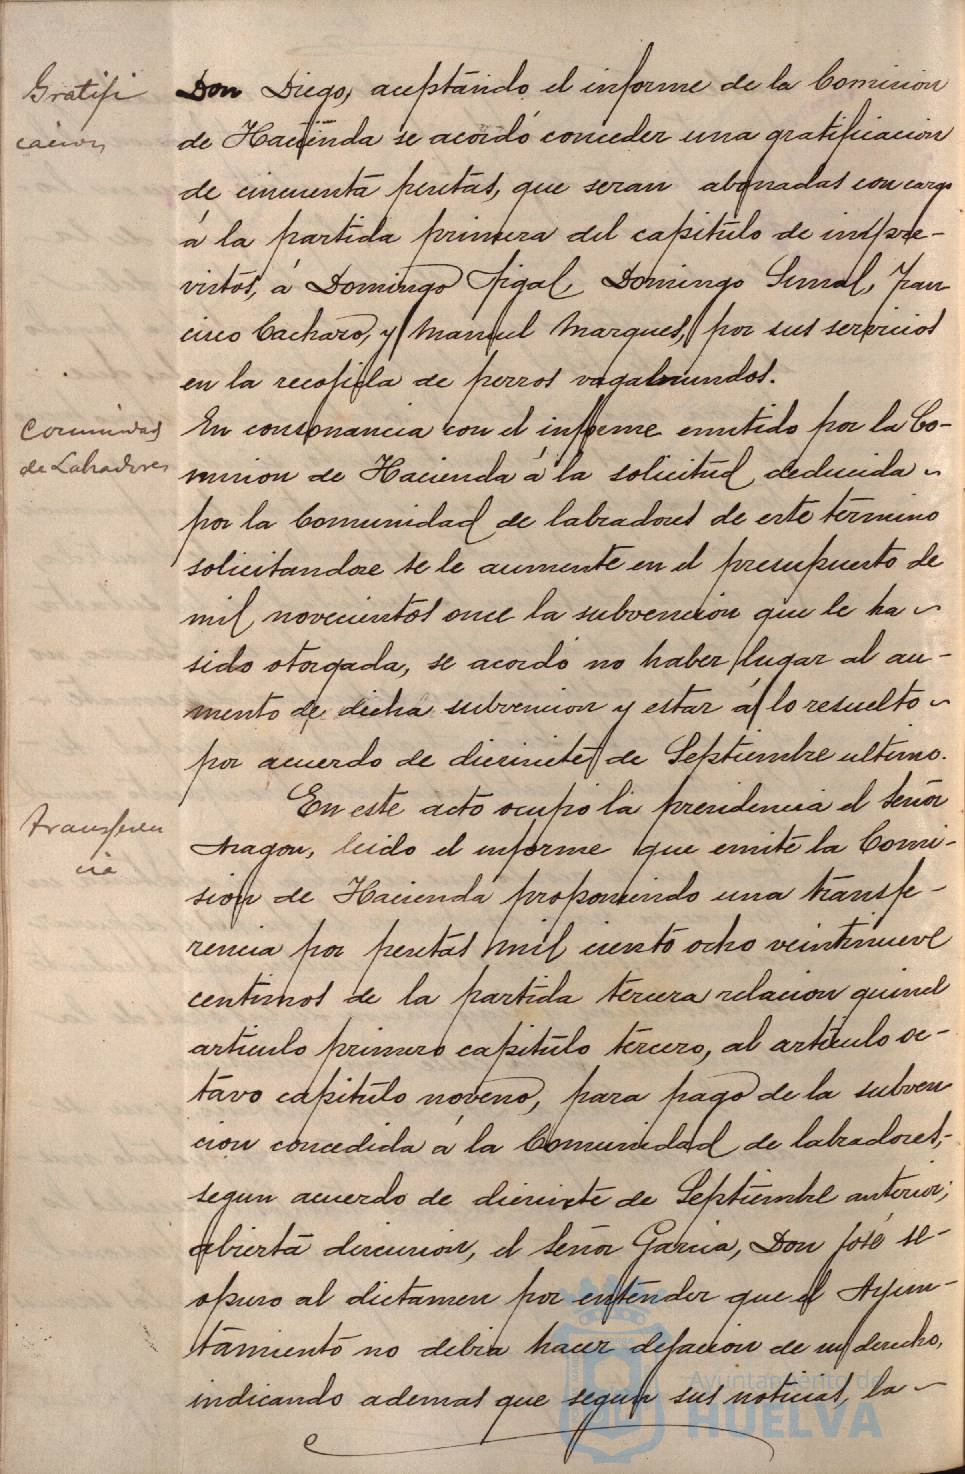 Gratifi
cación
Don Diego, aceptando el informe de la Comision
de Hacienda se acordó conceder una gratificacion
de cincuenta pesetas, que seran abonadas con cargo
á la partida primera del capitulo de impre-
vistos, á Domingo Domingo Fran
cisco y Manuel Marques, por sus servicios
en la recojida de perros vagabundos.
Comunidad
de Labradores
En consonancia con el informe emitido por la Co-
mision de Hacienda á la solicitud deducida
por la Comunidad de labradores de este término
solicitandose se le aumente en el presupuesto de
mil novecientos once la subvencion que le ha
sido otorgada, se acordó no haber lugar al au-
mento de dicha subvencion y estar á lo resuelto
por acuerdo de diecisiete de Septiembre ultimo.
Transferen
cia
En este acto ocupó la presidencia el Señor
Aragon, leido el informe que emite la Comi-
sion de Hacienda proponiendo una transfe-
rencia por pesetas mil ciento ocho veintinueve
centimos de la partida tercera relacion quince
articulo primero capitulo tercero, al articulo oc-
tavo capitulo noveno, para pago de la subven
cion concedida á la Comunidad de labradores,
segun acuerdo de diecisiete de Septiembre anterior;
abierta discusion, el señor Garcia, Don José se-
opuso al dictamen por entender que el Ayun-
tamiento no debia hacer dejacion de su derecho,
indicando ademas que segun sus noticias, la
Ayuntamiento de
HUELVA